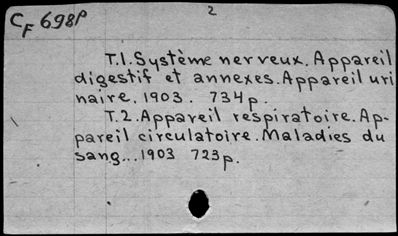 CF 698P
2
T.1. Système nerveux. Appareil
digestif et annexes. Appareil uri
naire. 1903. 734p.
T.2. Appareil respiratoire. Ap-
pareil circulatoire. Maladies du
sang... 1903 723p.